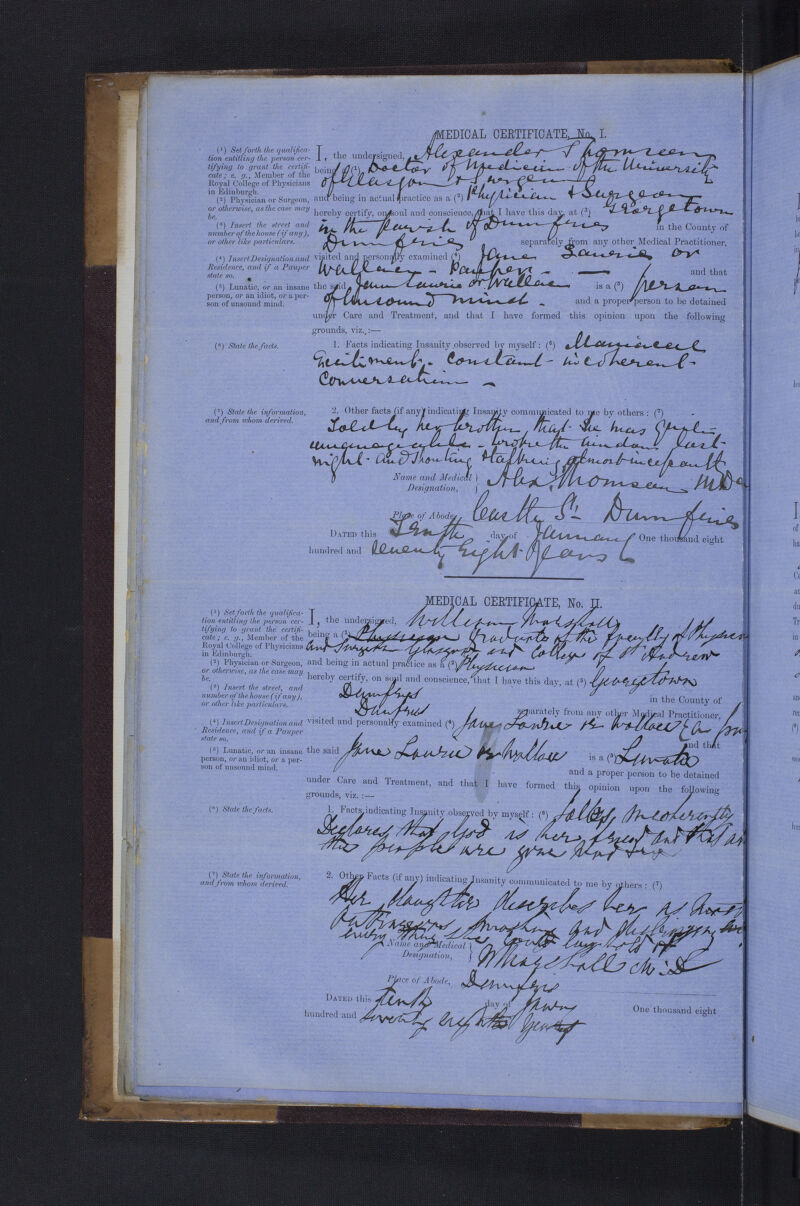 MEDICAL CERTIFICATE, No. I.
(1) Set forth the qualifica-
tion entitling the person cer-
tifying to grant the certifi-
cate; e. g., Member of the
Royal College of Physicians
in Edinburgh.
(2) Physician or Surgeon,
or otherwise, as the case may
be.
(3) Insert the street and
number of the house (if any),
or other like particulars.
(4) Insert Designation and
Residence, and if a Pauper
state so.
(5) Lunatic, or an insane
person, or an idiot, or a per-
son of unsound mind.
(6) State the facts.
(7) State the information,
and from whom derived.
I, the undersigned, Alexander Thomson
being (1) Doctor of Medicine of the University
of Glasgow & Surgeon
and being in actual practice as a (2) Physician & Surgeon
hereby certify, on soul and conscience, that I have this day, at (3) Georgetown
in the Parish of Dumfries in the County of
Dumfries separately from any other Medical Practitioner,
visited and personally examined (4) Jane Lawrie or
Wallace - Pauper - and that
the said Jane Lawrie or Wallace is a (5) person
of unsound mind. and a proper person to be detained
under Care and Treatment, and that I have formed this opinion upon the following
grounds, viz.:—
1. Facts indicating Insanity observed by myself: (6) Maniacal
Excitement - constant - incoherent
Conversation -
2. Other facts (if any) indicating Insanity communicated to me by others: (7)
Told by her brother, that she was quite
unmanageable - broke the window last
night - and shouting & talking almost incessantly
Name and Medical
Designation, } Alex. Thomson MD
Place of Abode, Castle St. Dumfries
DATED this Tenth day of January One thousand eight
hundred and seventy Eight Years
MEDICAL CERTIFICATE, No. II.
(1) Set forth the qualifica-
tion entitling the person cer-
tifying to grant the certifi-
cate; e. g., Member of the
Royal College of Physicians
in Edinburgh.
(2) Physician or Surgeon,
or otherwise, as the case may
be.
(3) Insert the street, and
number of the house (if any),
or other like particulars.
(4) Insert Designation and
Residence, and if a Pauper
state so.
(5) Lunatic, or an insane
person, or an idiot, or a per-
son of unsound mind.
(6) State the facts.
(7) State the information,
and from whom derived.
I, the undersigned, William Marshall
being a (1) Physician Graduate of the Faculty of Physicians
and Surgeons Glasgow and College of St Andrew
and being in actual practice as a (2) Physician
hereby certify, on soul and conscience, that I have this day, at (3) Georgetown
Dumfries in the County of
Dumfries separately from any other Medical Practitioner,
visited and personally examined (4) Jane Lawrie or Wallace
and that
the said Jane Lawrie or Wallace is a (5) Lunatic
and a proper person to be detained
under Care and Treatment, and that I have formed this opinion upon the following
grounds, viz.:—
1. Facts indicating Insanity observed by myself: (6) Talks incoherently
Declares that God is her friend and that
the people are gone
2. Other Facts (if any) indicating Insanity communicated to me by others: (7)
Her daughter describes her as
smashing and destroying
every thing she could lay hold of
Name and Medical
Designation, } W Marshall M.D
Place of Abode, Dumfries
DATED this tenth day of One thousand eight
hundred and seventy eight